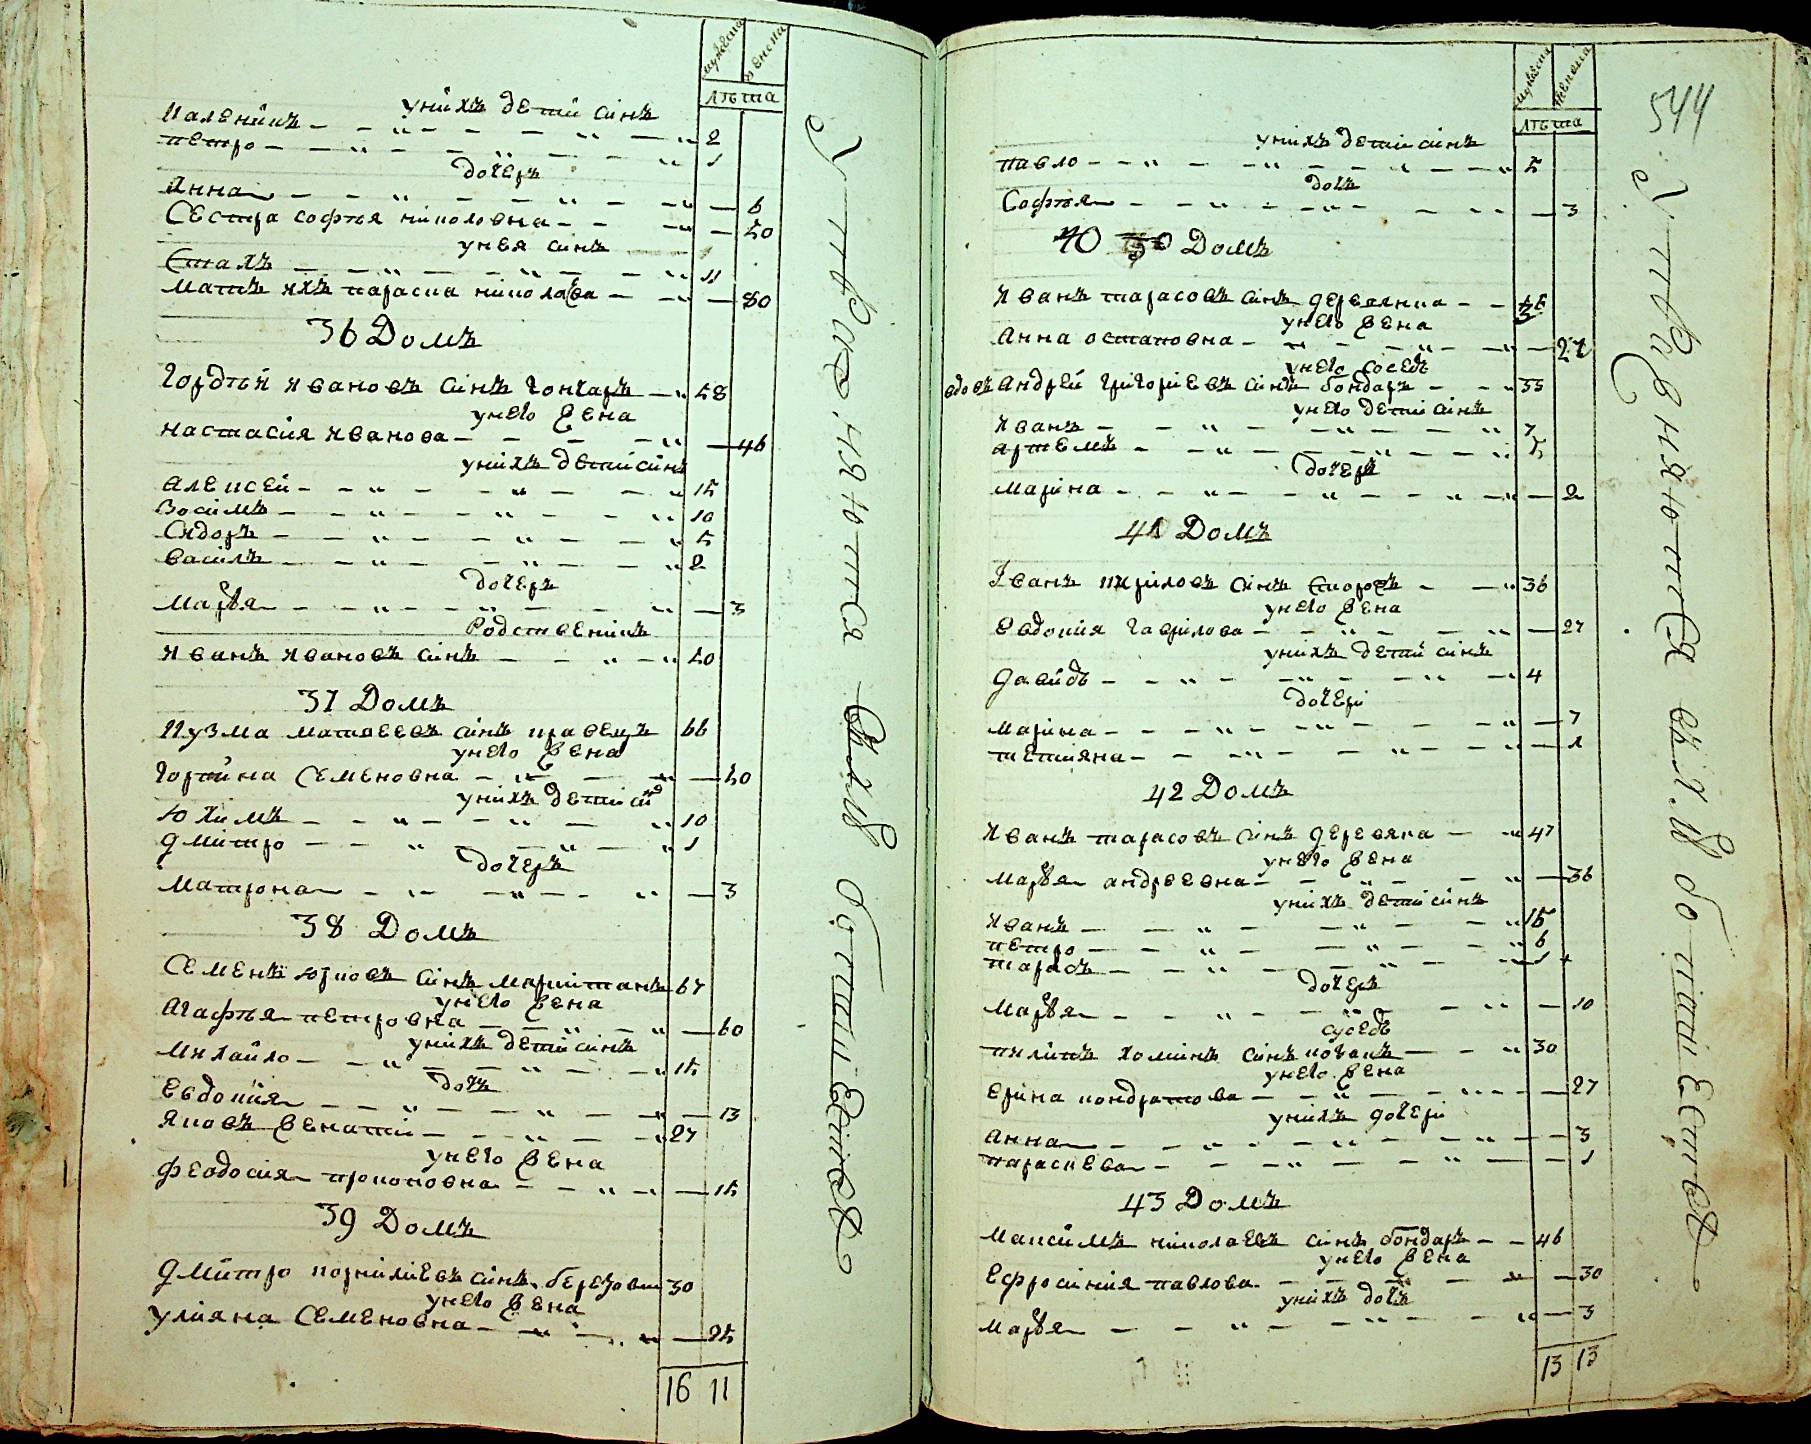 мужеска женска
лѣта
унихъ детй синъ
Каленикъ 2
петро 1
дочеръ
Анна 6
Сестра софѣя николовна 50
унея синъ
Стахъ 11
матъ ихъ параска николова 80
36 Домъ
Гордѣй Ивановъ синъ гончаръ 58
унего жена
настасия Иванова 46
унихъ детй синъ
Алексей 15
Зосимъ 10
Сидоръ 5
василъ 2
дочеръ
Маръя 3
Родственикъ
Иванъ Ивановъ синъ 50
37 Домъ
Кузма матвеевъ синъ кравецъ 66
унего жена
Горпина Семеновна 50
унихъ детй си
Юхимъ 10
Дмитро 1
дочеръ
Матрона 3
38 Домъ
Семенъ юрковъ синъ 67
унего жена
Агафѣя петровна 60
унихъ детй синъ
Михайло 15
дочъ
Евдокия 13
Яковъ женатй 27
унего жена
Феодосия прокоповна 15
39 Домъ
Дмитро корнилиевъ синъ березовш 30
унего жена
Улияна Семеновна 25
16 11
Утверждаются
мужеска женска
лѣта
544
унихъ детй синъ
павло 5
дочъ
Софѣя 3
40 Домъ
Иванъ тарасовъ синъ деревянка
унего жена
Анна остаповна 27
унего соседъ
вдовъ Андрей григориевъ синъ бондаръ 35
унего детй синъ
Иванъ 7
артемъ 5
дочеръ
Марина 2
41 Домъ
Иванъ кириловъ синъ 36
унего жена
Евдокия гаврилова 27
унихъ детй синъ
Давйдъ 4
дочери
Марина 7
тетияна 1
42 Домъ
Иванъ тарасовъ синъ деревяка 47
унего жена
Маръя андреевна 36
унихъ детй синъ
Иванъ 15
петро 6
тарасъ 1
дочеръ
Маръя 10
суседъ
пилипъ хоминъ синъ козакъ 30
унего жена
Ерина кондратова 27
унихъ дочери
Анна 3
параскева 1
43 Домъ
Максимъ николаевъ синъ бондаръ 46
унего жена
Ефросиния павлова 30
унихъ дочъ
Маръя 3
13 13